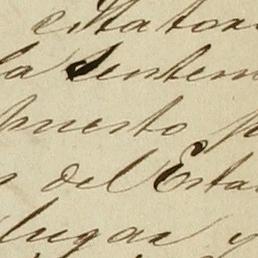 citator
la senten
puesto p
s del Esta
lugar y